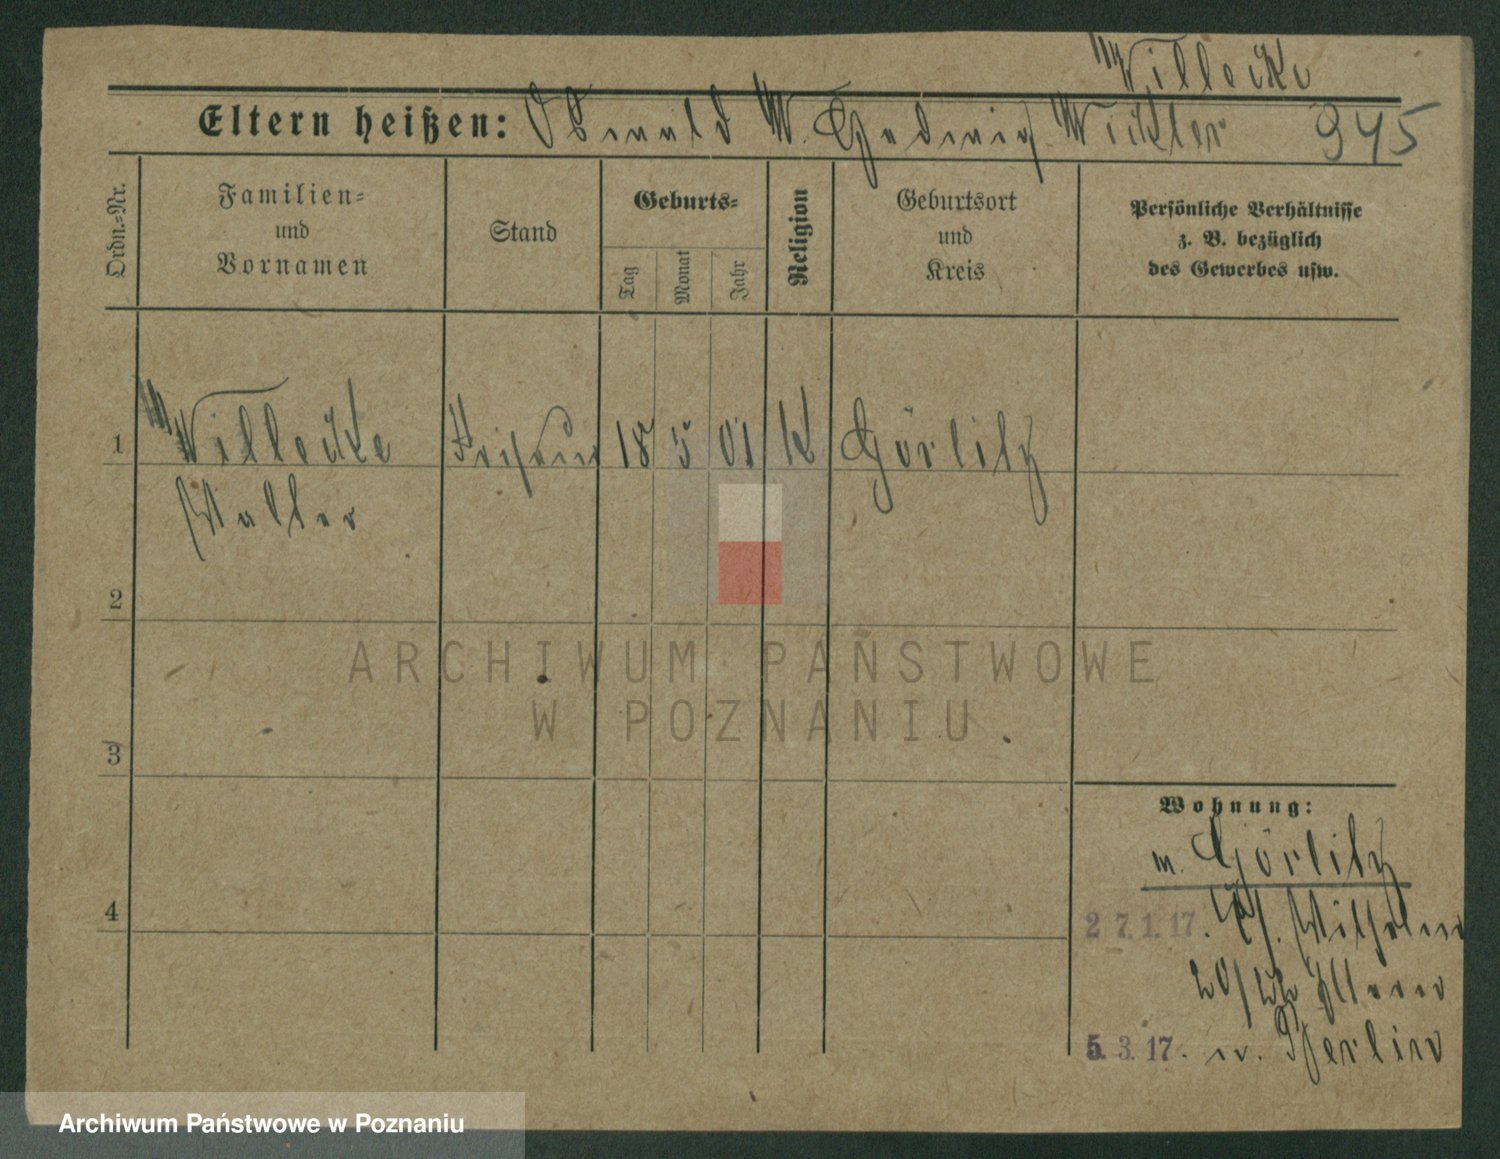 Willecke
Eltern heißen: Oswald W. Hedwig Winkler 945
Ordn.=Nr.
Familien=
und
Vornamen
Stand
Geburts=
Tag
Monat
Jahr
Religion
Geburtsort
und
Kreis
Persönliche Verhältnisse
z. B. bezüglich
des Gewerbes usw.
1 Willecke Friseur 18 5 01 K Görlitz
Walter
2
ARCHIWUM PAŃSTWOWE
W POZNANIU
3
Wohnung:
Görlitz
4
27.1.17. Wilhelm
20/22
5.3.17. n. Berlin
Archiwum Państwowe w Poznaniu